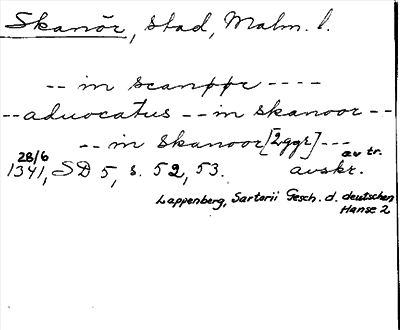 Skanör, stad, Malm. l.
-- in scanppr ----
-- aduocatus -- in skanoor --
-- in skanoor [2 ggr] ---
28/6 av tr.
1341, SD 5, s. 52, 53. avskr.
Lappenberg, Sartorii Gesch. d. deutschen
Hanse 2